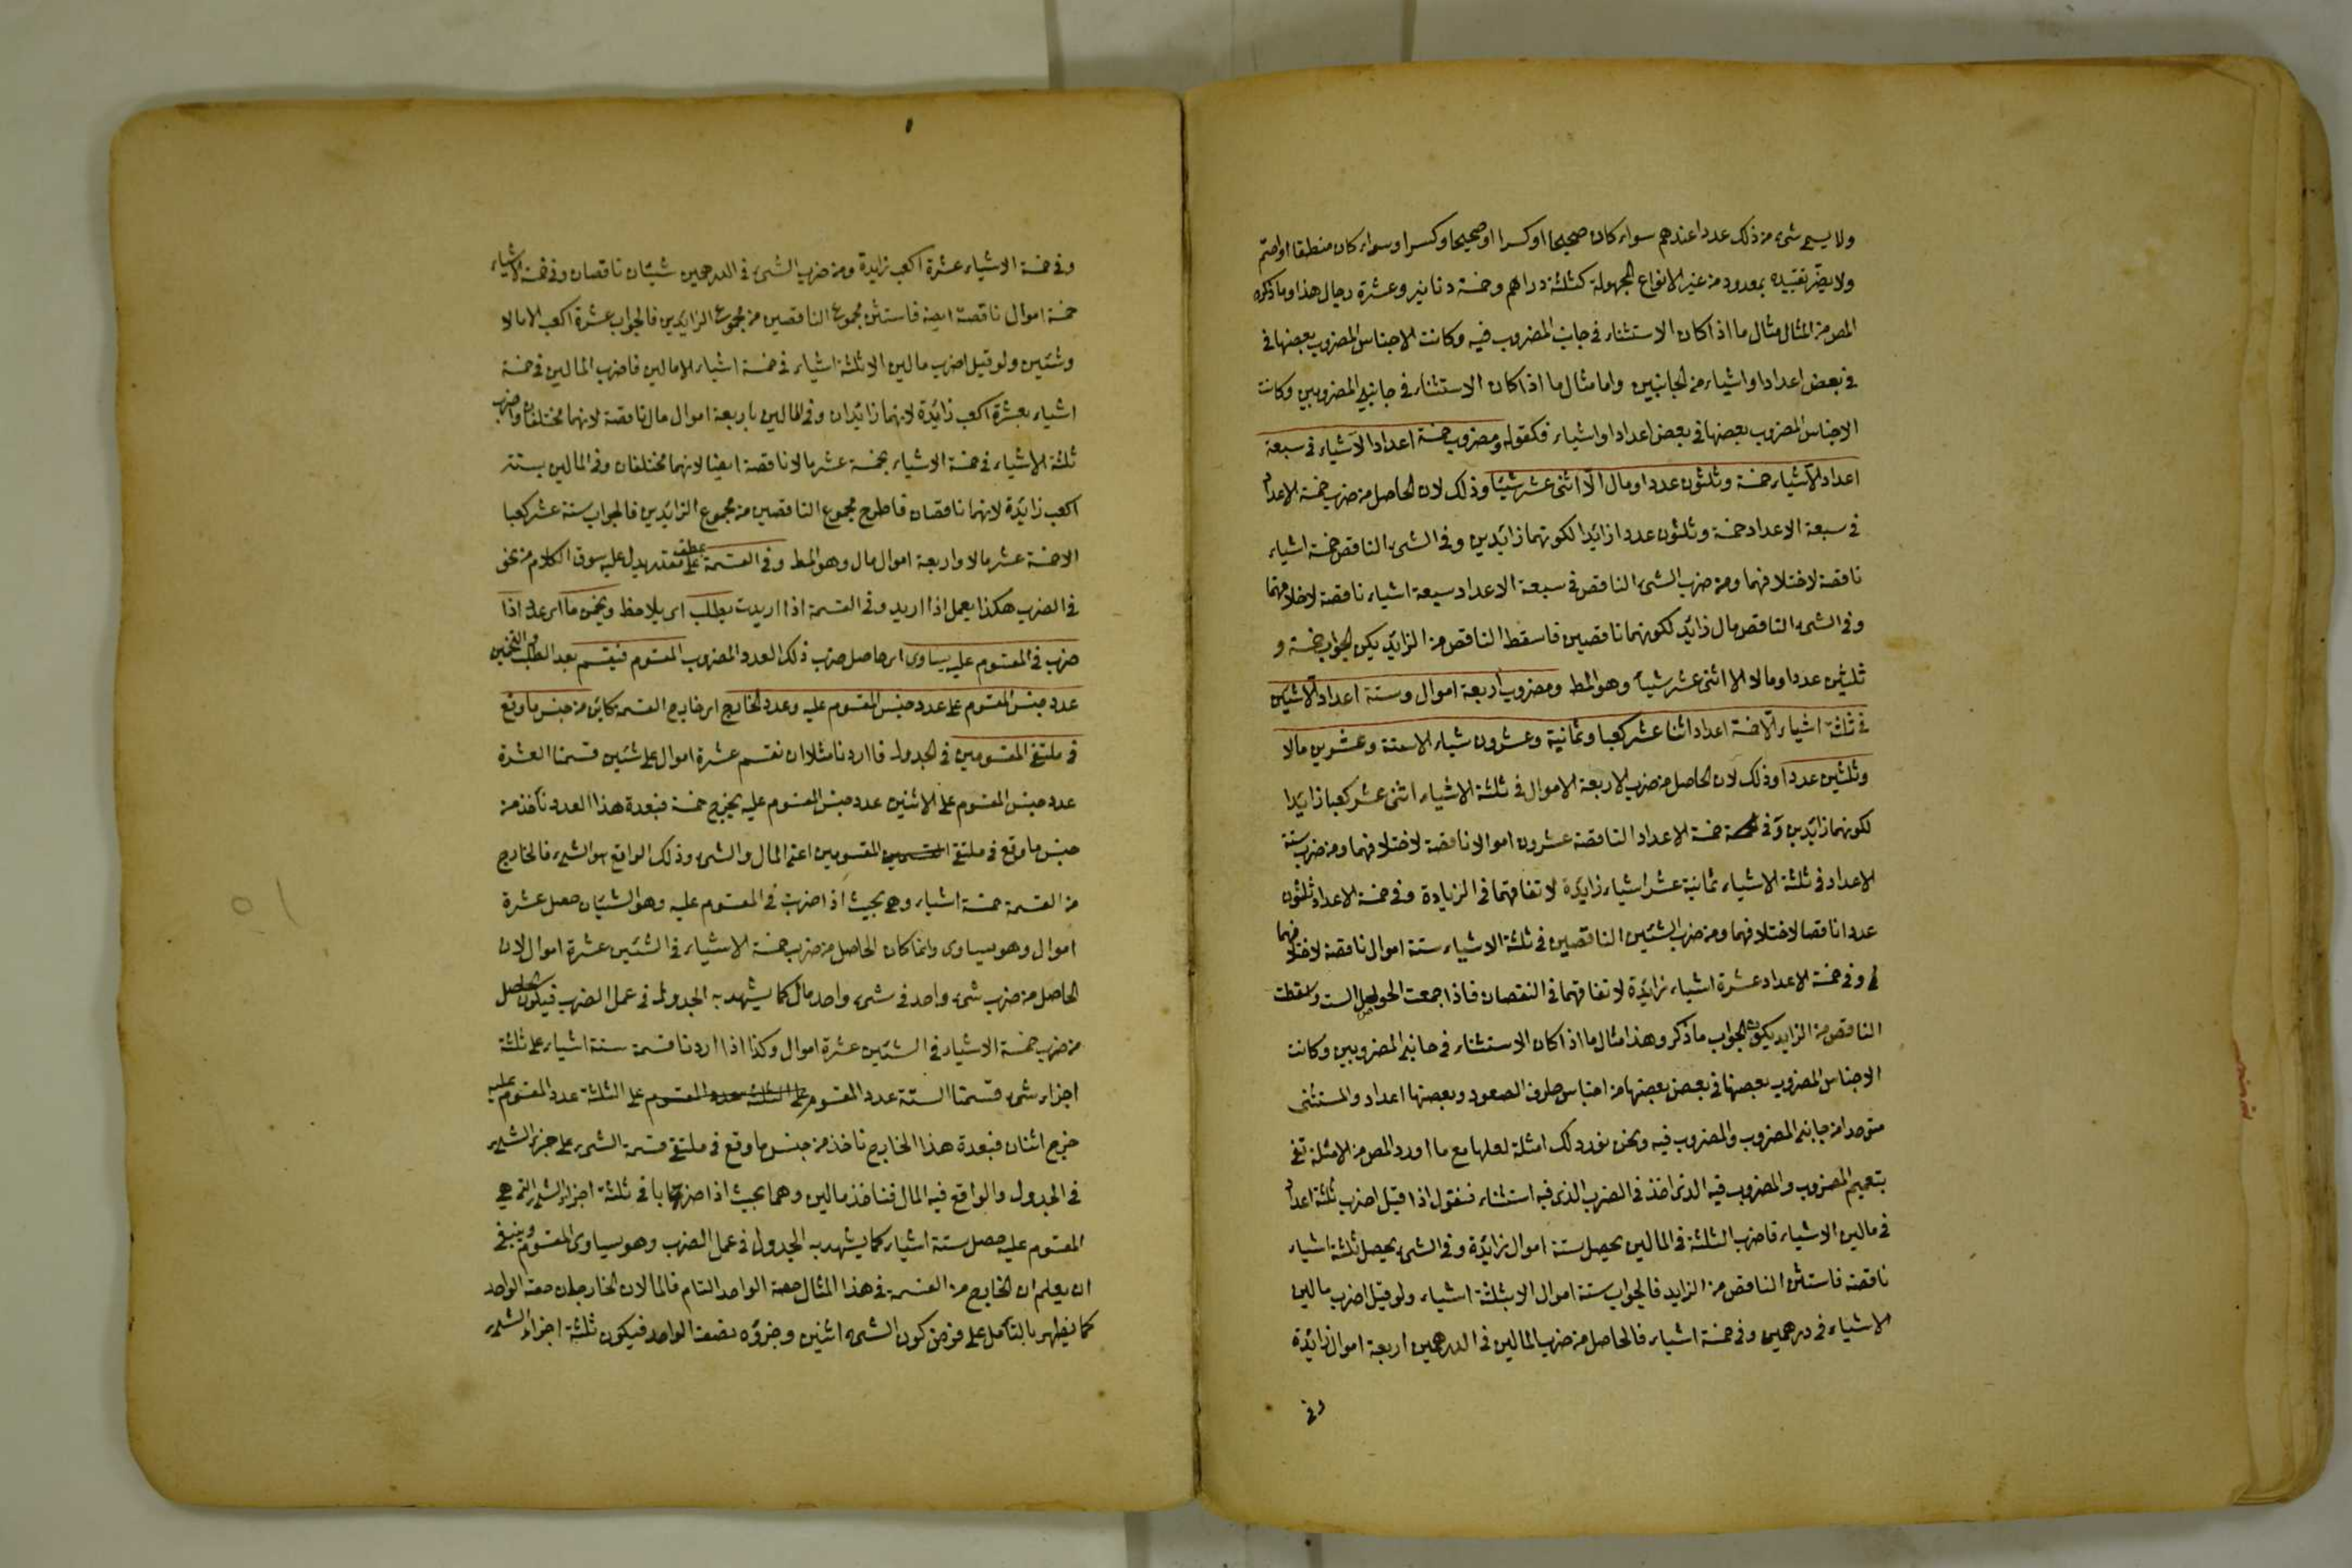 ولا يسمى شئ من ذلك عددا عندهم سواء كان صحيحا او كسرا او صحيحا وكسرا وسواء كان منطقا او اصم
ولا يضر تقييده بمعدود من غير الانواع المجهولة كثلثة دراهم وخمسة دنانير وعشرة رجال هذا وما ذكره
المص من المثال مثال ما اذا كان الاستثناء فى جانب المضروب فيه وكانت الاجناس المضروب بعضها فى
فى بعض اعدادا واشياء من الجانبين واما مثال ما اذا كان الاستثناء فى جانبى المضروبين وكانت
الاجناس المضروب بعضها فى بعض اعدادا واشياء فكقوله ومضروب خمسة اعداد الا شياء فى سبعة
اعداد الا شياء خمسة وثلثون عددا ومال الا اثنى عشر شيئا وذلك لان الحاصل من ضرب خمسة الاعداد
فى سبعة الاعداد خمسة وثلثون عددا زائدا لكونهما زائدين وفى الشئ الناقص خمسة اشياء
ناقصة لاختلافهما ومن ضرب الشئ الناقص فى سبعة الاعداد سبعة اشياء ناقصة لاختلافهما
وفى الشئ الناقص مال زائد لكونهما ناقصين فاسقط الناقص من الزائد يكن الجواب خمسة و
ثلثين عددا ومالا الا اثنى عشر شيئا وهو المط ومضروب اربعة اموال وستة اعداد الا شيئين
فى ثلثة اشياء الا خمسة اعداد اثنا عشر كعبا وثمانية وعشرون شياء الا ستة وعشرين مالا
وثلثين عددا وذلك لان الحاصل من ضرب الاربعة الاموال فى ثلثة الاشياء اثنى عشر كعبا زايدا
لكونهما زائدين وفى خمسة الاعداد الناقصة عشرون اموالا ناقصة لاختلافهما ومن ضرب ستة
الاعداد فى ثلثة الاشياء ثمانية عشر اشياء زايدة لاتفاقهما فى الزيادة وفى خمسة الاعداد ثلثون
عددا ناقصا لاختلافهما ومن ضرب الشئين الناقصين فى ثلثة الاشياء ستة اموال ناقصة لاختلافهما
وفى خمسة الاعداد عشرة اشياء زايدة لاتفاقهما فى النقصان فاذا جمعت الحواصل الست واسقطت
الناقص من الزايد يكون الجواب ما ذكر وهذا مثال ما اذا كان الاستثناء فى جانبى المضروبين وكانت
الاجناس المضروب بعضها فى بعض بعضها من اجناس طرف الصعود وبعضها اعداد والمستثنى
متوحدا من جانبى المضروب والمضروب فيه ونحن نورد لك امثلة لعلها مع ما اورد المص من الامثلة تفى
بتعميم المضروب والمضروب فيه الذى اخذ فى الضرب الذى فيه استثناء فنقول اذا قيل اضرب ثلثة اعداد
فى مالين الا شياء فاضرب الثلثة فى المالين يحصل ستة اموال زايدة وفى الشئ يحصل ثلثة اشياء
ناقصة فاستثن الناقص من الزايد فالجواب ستة اموال الا ثلثة اشياء ولو قيل اضرب مالين
الا شياء فى درهمين وفى خمسة اشياء فالحاصل من ضرب المالين فى الدرهمين اربعة اموال زائدة
وفى
وفى خمسة الاشياء عشرة اكعب زايدة ومن ضرب الشئ فى الدرهمين شيئان ناقصان وفى خمسة الاشياء
خمسة اموال ناقصة ايضا فاستثن مجموع الناقصين من مجموع الزايدين فالجواب عشرة اكعب الا مالا
وشئين ولو قيل اضرب مالين الا ثلثة اشياء فى خمسة اشياء الا مالين فاضرب المالين فى خمسة
اشياء بعشرة اكعب زائدة لانهما زائدان وفى المالين باربعة اموال مال ناقصة لانهما مختلفان واضرب
ثلثة الاشياء فى خمسة الاشياء بخمسة عشر مالا ناقصة ايضا لانهما مختلفان وفى المالين بستة
اكعب زائدة لانهما ناقصان فاطرح مجموع الناقصين من مجموع الزايدين فالجواب ستة عشر كعبا
الا خمسة عشر مالا واربعة اموال مال وهو المط وفى القسمة عطف على مقدر يدل عليه سوق الكلام من نحو
فى الضرب هكذا يعمل اذا اريد وفى القسمة اذا اريدت يطلب اى يلاحظ ويخمن ما اى عدد اذا
ضرب فى المقسوم عليه يساوى اى حاصل ضرب ذلك العدد المضروب المقسوم فيقسم بعد الطلب والتخمين
عدد جنس المقسوم على عدد جنس المقسوم عليه وعدد الخارج اى خارج القسمة كاين من جنس ما وقع
فى ملتقى المقسومين فى الجدول فاذا اردنا مثلا ان نقسم عشرة اموال على شئين قسمنا العشرة
عدد جنس المقسوم على الاثنين عدد جنس المقسوم عليه يخرج خمسة فبعدة هذا العدد تأخذ من
جنس ما وقع فى ملتقى المقسومين اعنى المال والشئ وذلك الواقع هو الشئ فالخارج
من القسمة خمسة اشياء وهى بحيث اذا ضربت فى المقسوم عليه وهو الشيئان حصل عشرة
اموال وهو يساوى وانما كان الحاصل من ضرب خمسة الاشياء فى الشئين عشرة اموال لان
الحاصل من ضرب شئ واحد فى شئ واحد مال كما يشهد به الجدول فى عمل الضرب فيكون الحاصل
من ضرب خمسة الاشياء فى الشئين عشرة اموال وكذا اذا اردنا قسمة ستة اشياء على ثلثة
اجزاء شئ قسمنا الستة عدد المقسوم على الثلثة عدد المقسوم عليه
خرج اثنان فبعدة هذا الخارج ناخذ من جنس ما وقع فى ملتقى قسمة الشئ على جزء الشئ
فى الجدول والواقع فيه المال فناخذ مالين وهما بحيث اذا ضربا فى ثلثة اجزاء الشئ التى هى
المقسوم عليه حصل ستة اشياء كما يشهد به الجدول فى عمل الضرب وهو يساوى المقسوم وينبغى
ان يعلم ان الخارج من القسمة فى هذا المثال حصة الواحد التام فالمالان الخارجان حصة الواحد
كما يظهر بالتأمل على فرض كون الشئ اثنين وجزؤه نصف الواحد فيكون ثلثة اجزاء الشئ